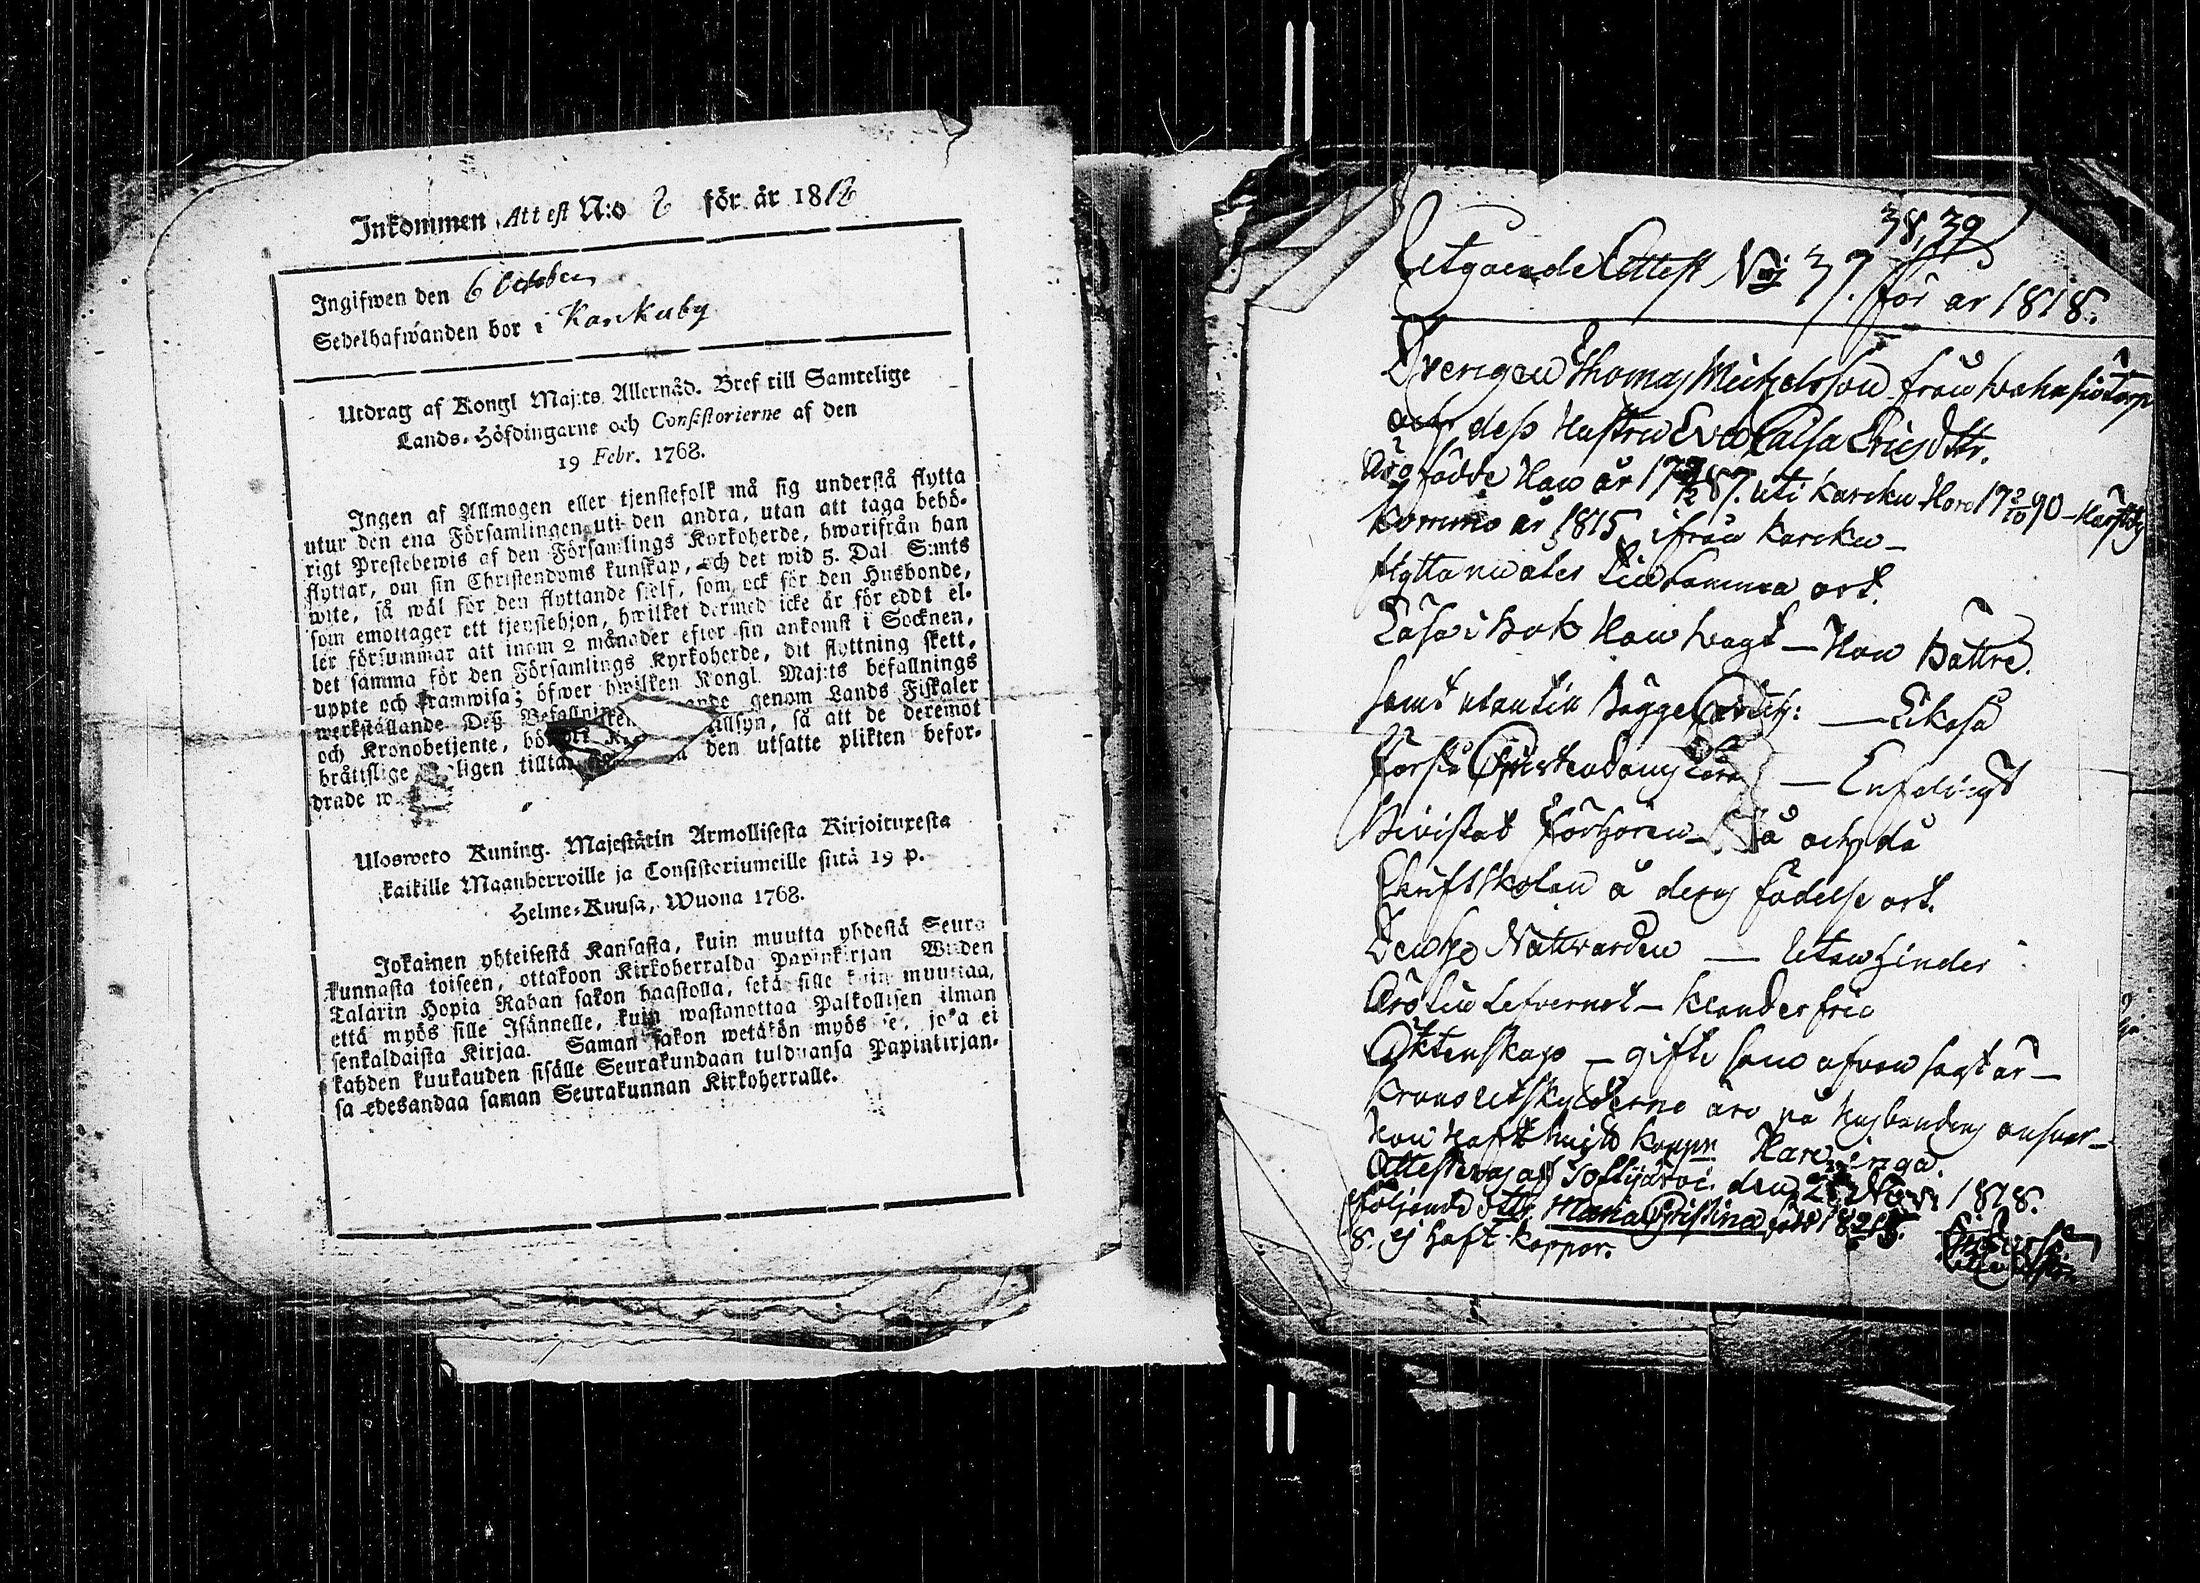 Inkommen Attest N:o 2 för år 1812
Ingifwen den 6 October
Sedelhafwanden bor i Karkuby
Utdrag af Kongl Maj:ts Allernåd. Bref till Samtelige
Lands-Höfdingarne och Consistorierne af den
19 Febr. 1768.
Ingen af Allmogen eller tjenstefolk må sig understå flytta
utur den ena Församlingen uti den andra, utan att taga behö-
rigt Prestebewis af den Församlings Kyrkoherde, hwarifrån han
flyttar, om sin Christendoms kunskap, och det wid 5. Dal. S:mts
wite, så wäl för den flyttande sielf, som ock för den Husbonde,
som emottager ett tjenstehjon, hwilket dermed icke är försedt el-
ler försummar att inom 2 månader efter sin ankomst i Socknen,
det samma för den Församlings Kyrkoherde, dit flyttning skett,
uppte och framwisa; öfwer hwilken Kongl. Maj:ts befallnings
werkställande Deß genom Lands Fiskaler
och Kronobetjente, så att de deremot
bråttslige tillt den utsatte plikten befor-
drade w
Ulosweto Kuning. Majestätin Armollisesta Kirjoituxesta
kaikille Maanherroille ja Consistoriumeille siitä 19 p.
Helme-Kuusa, Wuona 1768.
Jokainen yhteisestä Kansasta, kuin muutta yhdestä Seura
kunnasta toiseen, ottakoon Kirkoherralda Papinkirjan Wiiden
Talarin Hopia Rahan sakon haastolla, sekä sille kuin muuttaa,
että myös sille Isännelle, kuin wastanottaa Palkollisen ilman
senkaldaista Kirjaa. Saman sakon wetäkön myös se, joka ei
kahden kuukauden sisälle Seurakundaan tulduansa Papinkirjan-
sa edesandaa saman Seurakunnan Kirkoherralle.
38, 39
Utgående Attest N:o 37. för år 1818.
Drengen Thomas Michelsson från torp
och deß Hustru Eva Caisa Ericsdttr.
Äro födde Han år 1787. uti Karcku Hon 1790 –
Kommo år 1815 ifrån Karcku –
flytta nu åter till samma ort.
Läsa i Bok Han swagt – Hon Bättre.
samt utantill – Likaså
förstå Christendoms Läran – Enfaldigt
Bivistat Förhören Då och då
Skriftskolan å deras födelse ort.
Den H. Nattvarden — Utan hinder
Äro till Lefvernet – klanderfria
Äktenskap – gifte som ofvan sagt är –
Krono Utskylderne äro på Husbondens ansvar –
Han Haft koppr. Hon inga.
Attesteras af Tottijärvi den Nov. 1818.
Följande dttr Maria Christina född
8. ej haft koppor.